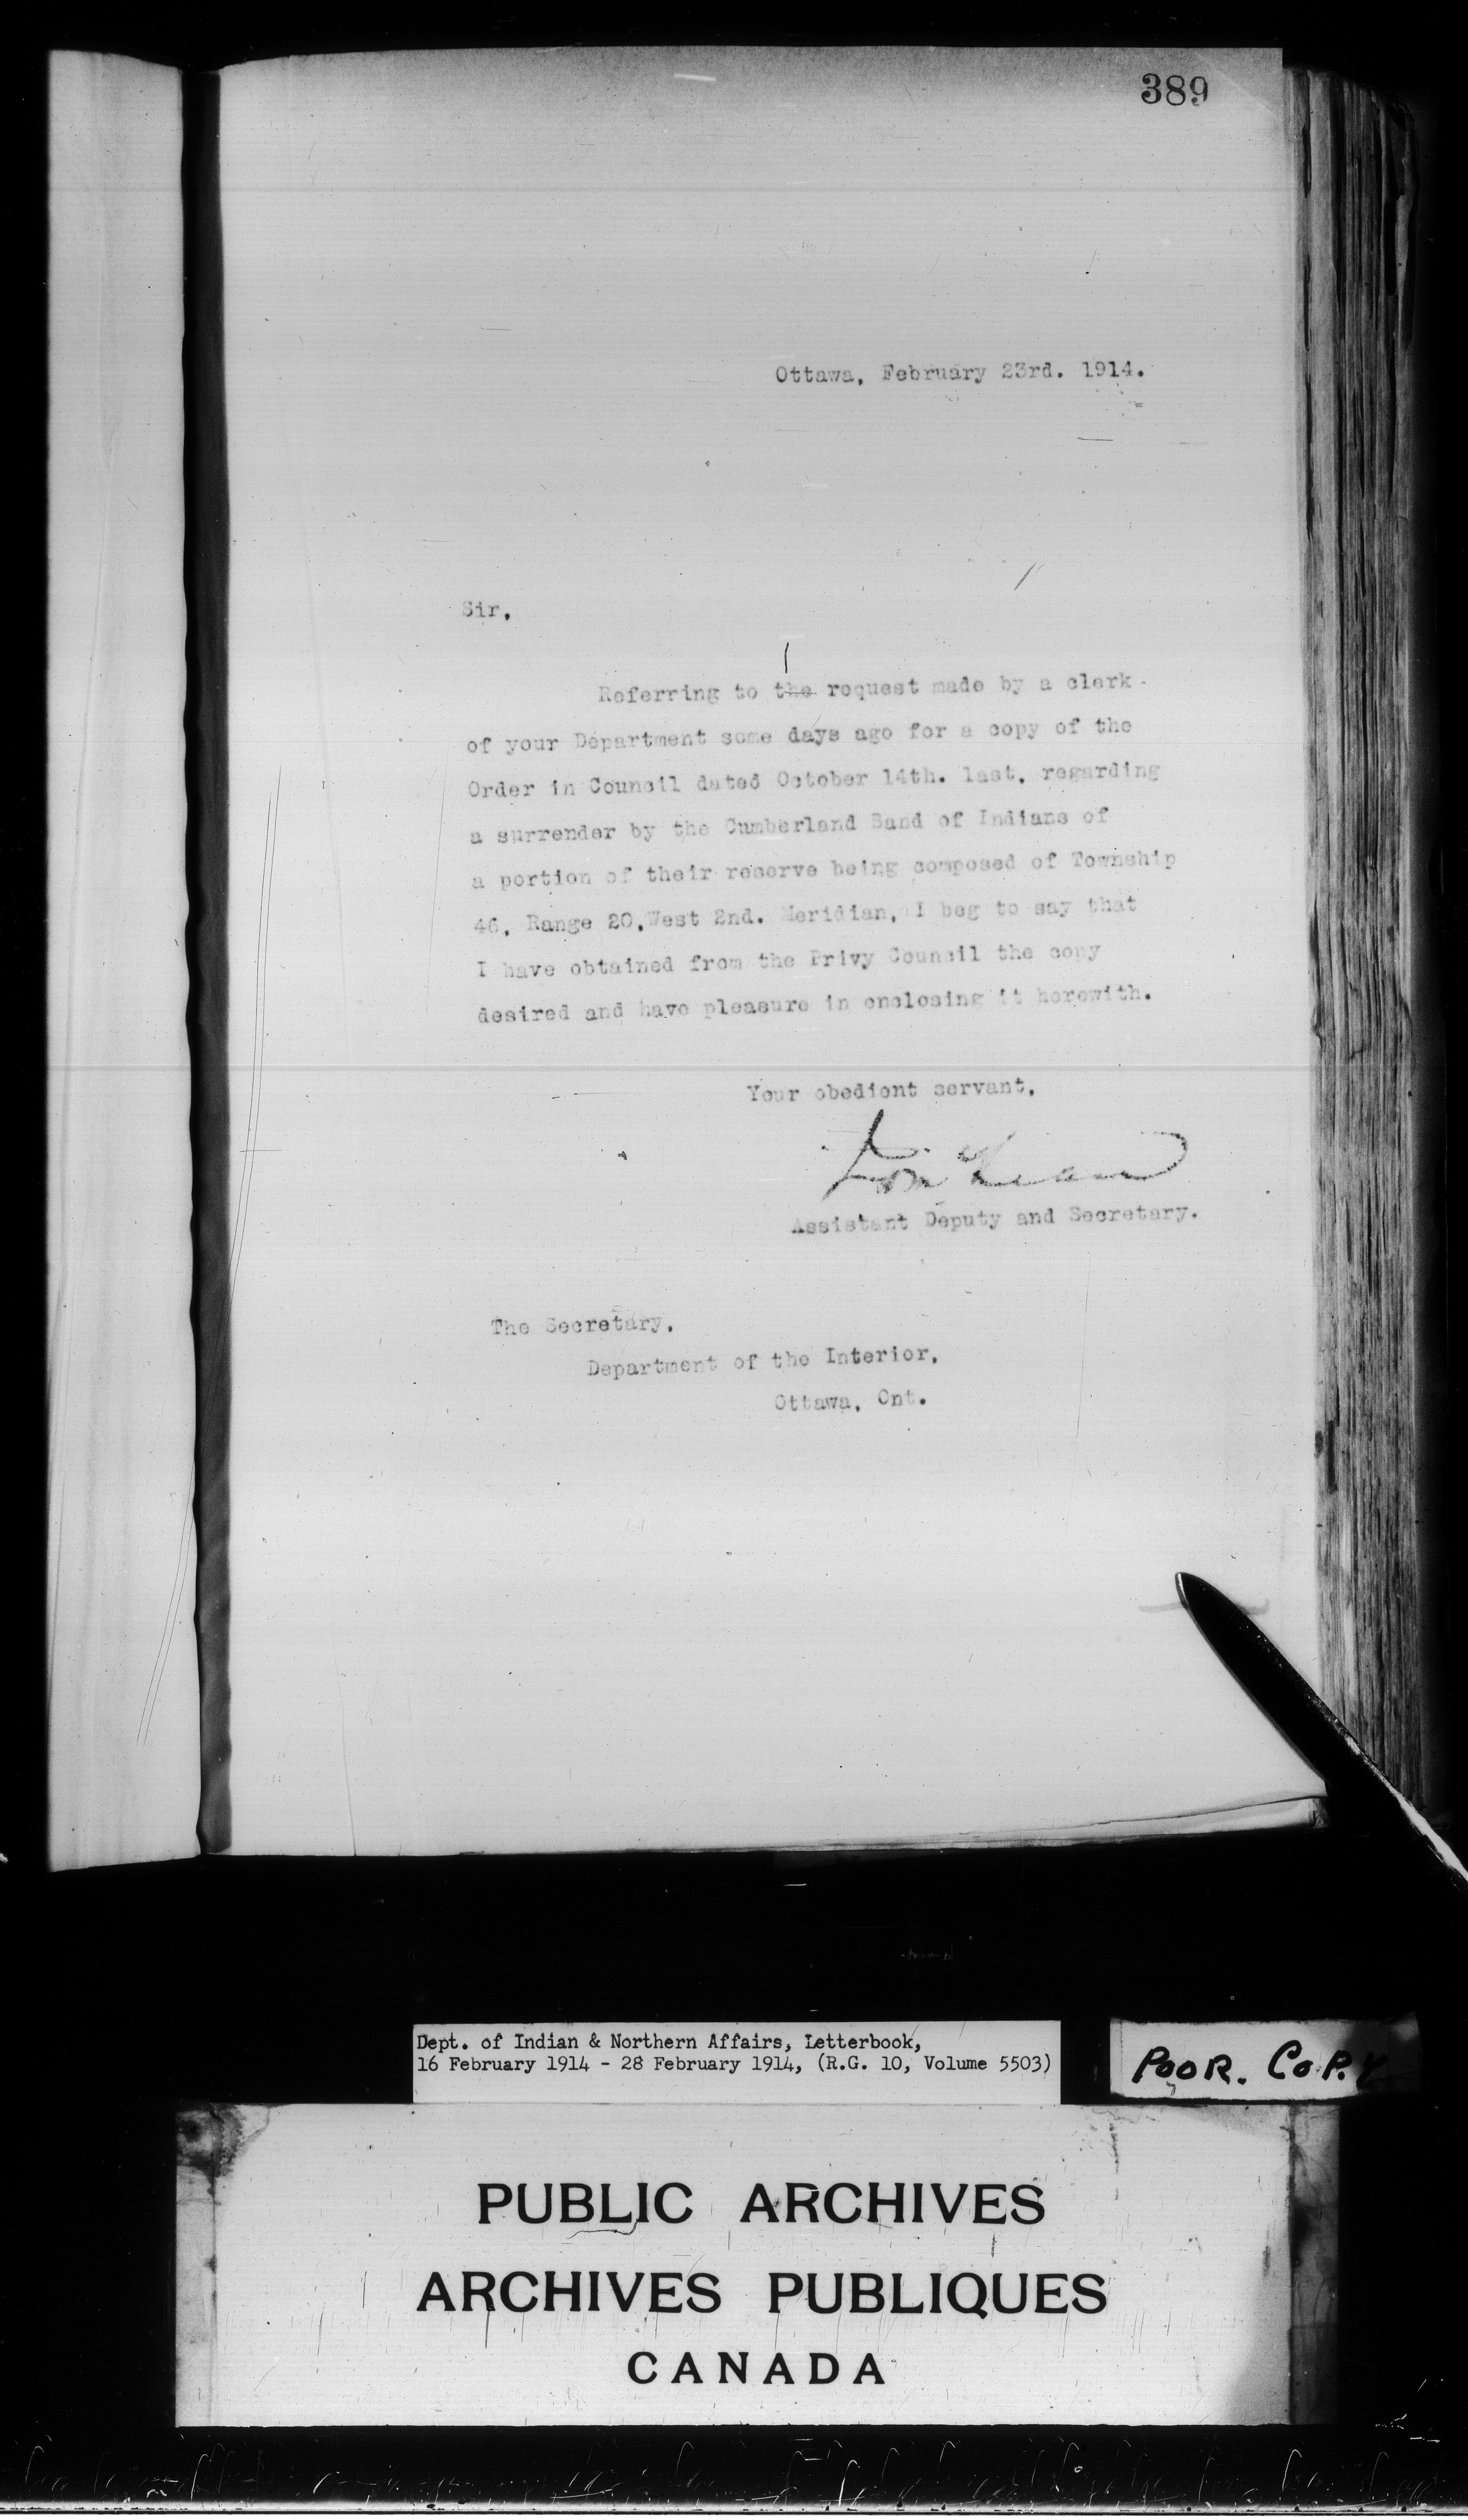 389
Ottawa, February 23rd. 1914.
Sir,
Referring to the request made by a clerk
of your Department some days ago for a copy of the
Order in Council dated October 14th. last, regarding
a surrender by the Cumberland Band of Indians of
a portion of their reserve being composed of Township
46, Range 20, West 2nd. Meridian, I beg to say that
I have obtained from the Privy Council the copy
desired and have pleasure in enclosing it herewith.
Your obedient servant,
Assistant Deputy and Secretary.
The Secretary,
Department of the Interior,
Ottawa, Ont.
Dept. of Indian & Northern Affairs, Letterbook,
16 February 1914 - 28 February 1914, (R.G. 10, Volume 5503)
POOR. COPY
PUBLIC ARCHIVES
ARCHIVES PUBLIQUES
CANADA